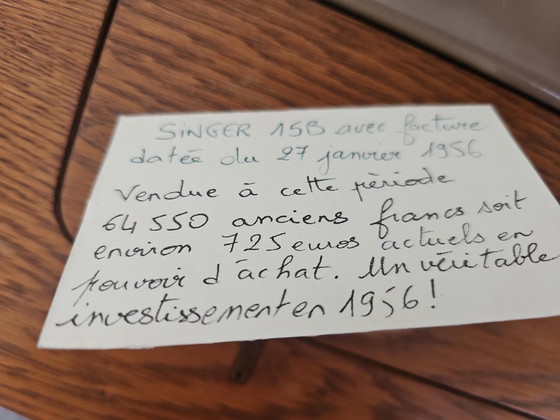 SINGER 15B avec facture
datée du 27 janvier 1956
Vendue à cette pèriode
64 550 anciens francs soit
environ 725 euros actuels en
pouvoir d'achat. Un véritable
investissement en 1956!